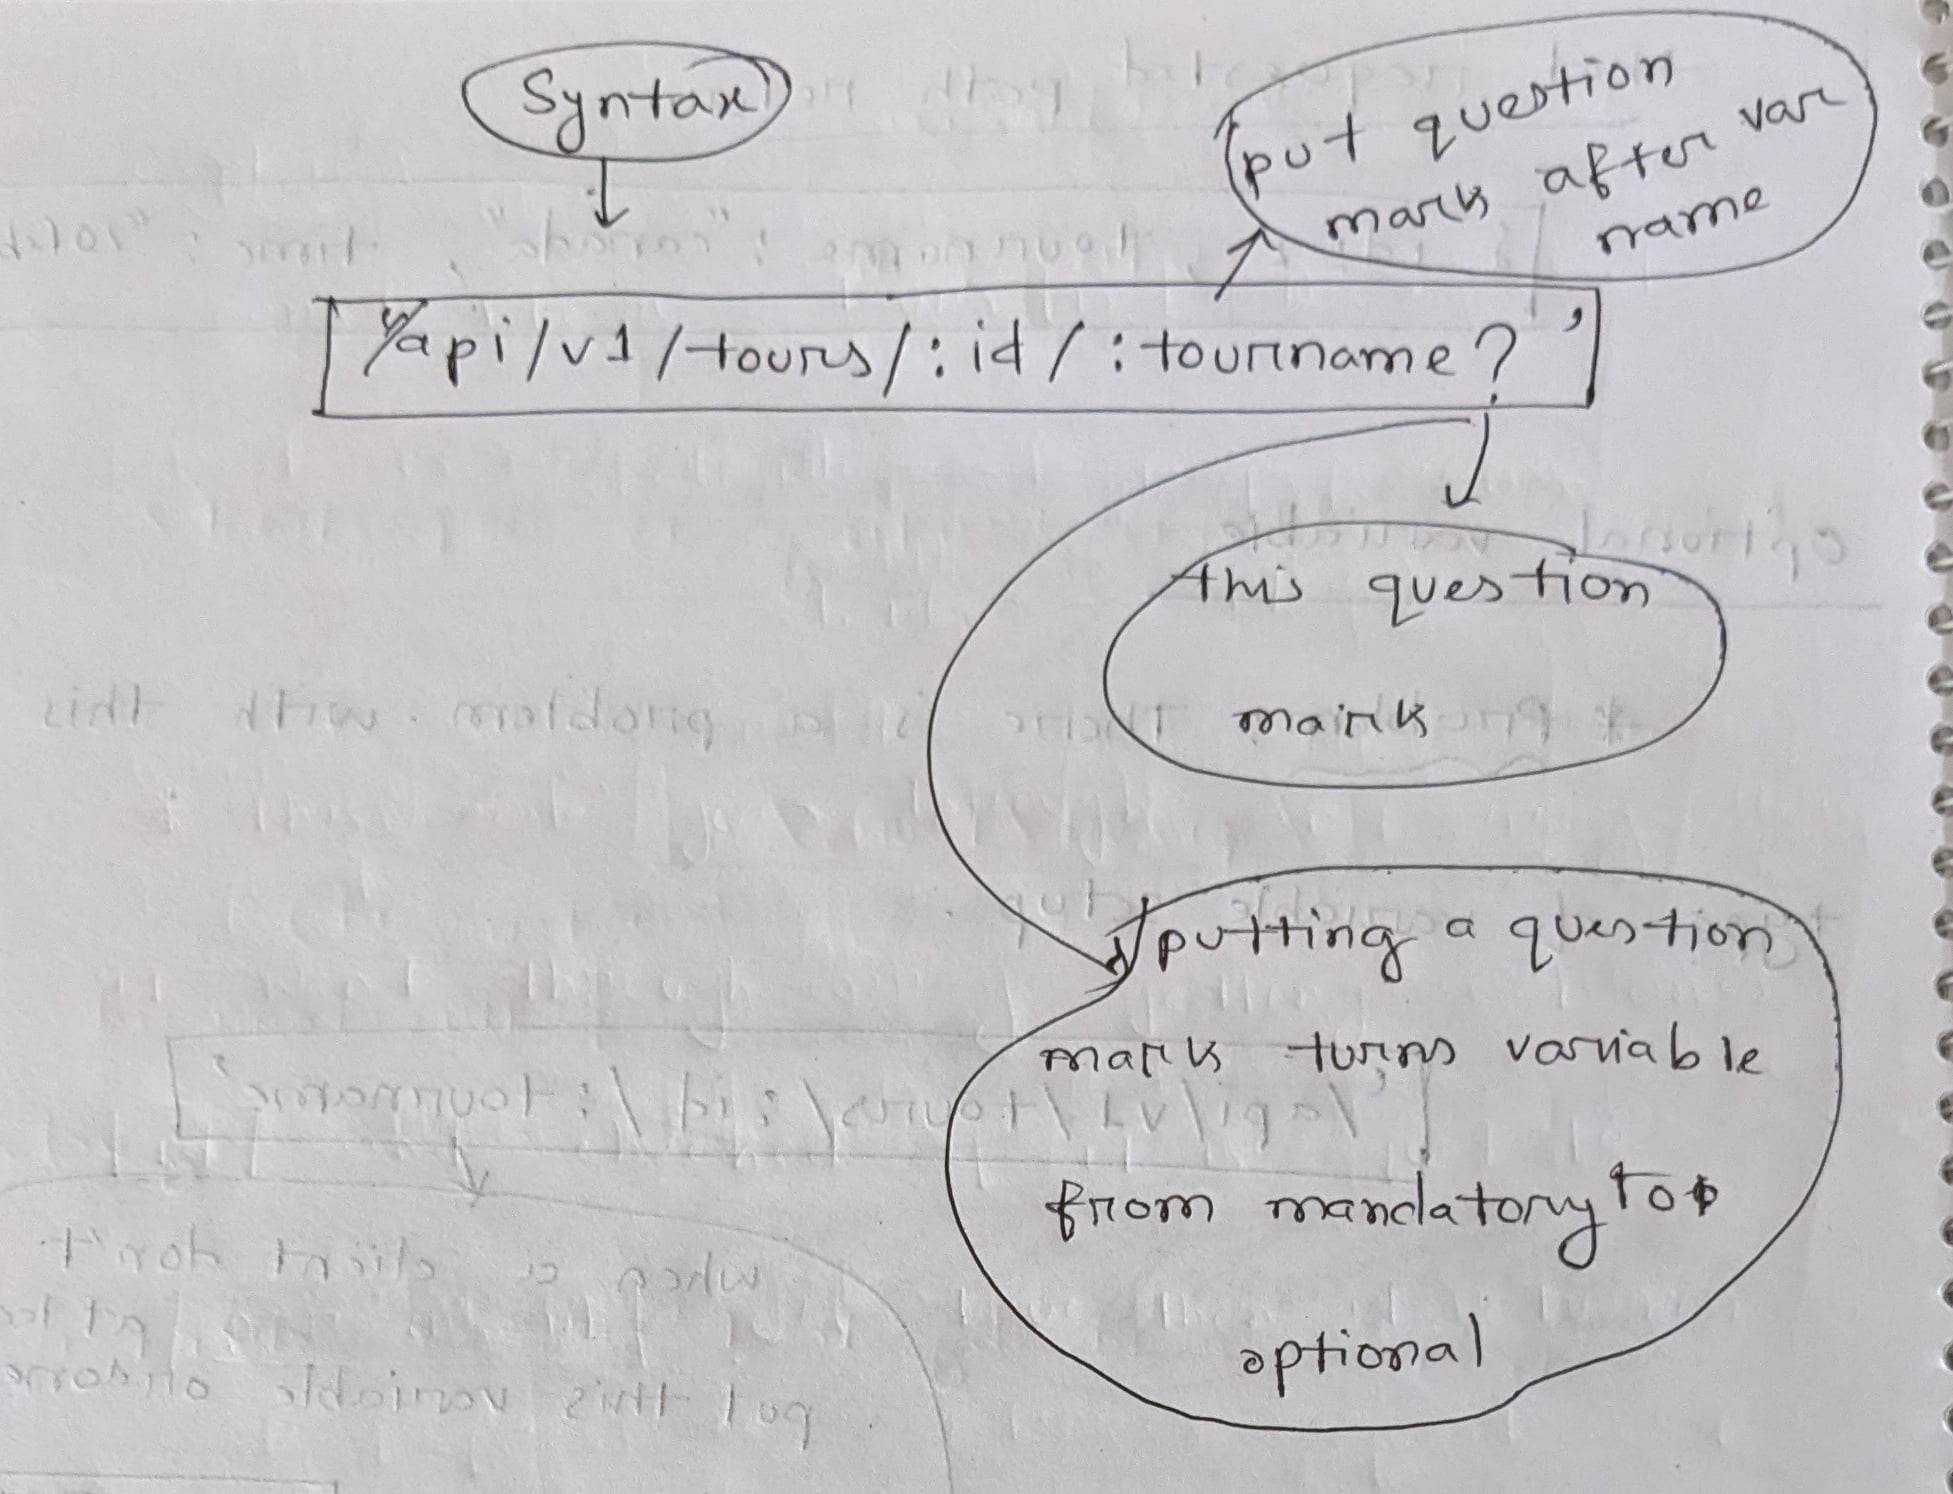 Syntax
put question
mark after var
name
'/api/v1/tours/:id/:tourname?'
this question
mark
putting a question
mark turns variable
from mandatory to
optional